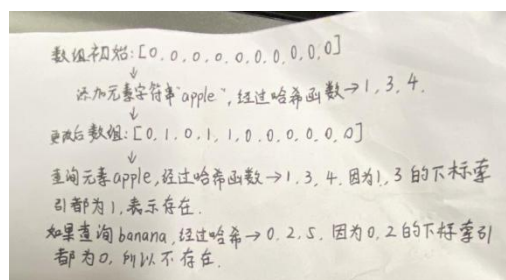 数组初始:[0,0,0,0,0,0,0,0,0,0]
↓
添加元素字符串"apple",经过哈希函数→1,3,4.
↓
更改后数组:[0,1,0,1,1,0,0,0,0,0,0]
↓
查询元素apple,经过哈希函数→1,3,4.因为1,3的下标索
引都为1,表示存在.
如果查询banana,经过哈希→0,2,5.因为0,2的下标索引
都为0,所以不存在.